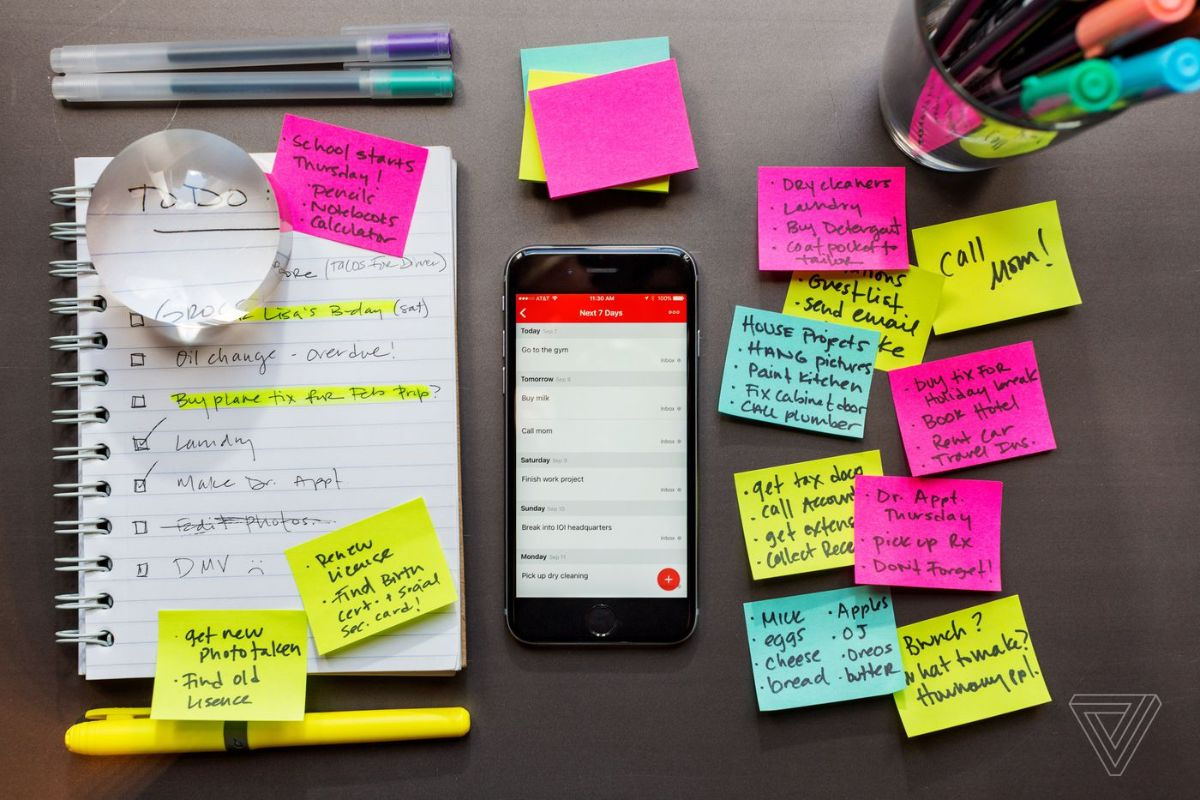 TO DO:
(TACOS FOR Dinner)
Lisa's B-day (sat)
Oil change - overdue!
Buy plane tix for Feb trip?
Laundry
Make Dr. Appt
Edit photos
DMV ☹
• School starts
Thursday!
• Pencils
• Notebooks
• Calculator
• Renew
License
• Find Birth
cert. + Social
Sec. card!
• get new
photo taken
• Find old
lisence
AT&T 11:30 AM 100%
Next 7 Days
Today Sep 7
Go to the gym
Inbox
Tomorrow Sep 8
Buy milk
Inbox
Call mom
Inbox
Saturday Sep 9
Finish work project
Inbox
Sunday Sep 10
Break into IOI headquarters
Inbox
Monday Sep 11
Pick up dry cleaning
• Dry cleaners
• Laundry
• Buy Detergent
• coat pocket to
tailor
Call
Mom!
• Guest list
• send email
House Projects
• HANG pictures
• Paint Kitchen
• Fix cabinet door
• CALL plumber
• Buy tix FOR
Holiday break
• Book Hotel
• Rent Car
• Travel Ins.
• get tax docs
• call Account
• get extens
• collect Rece
• Dr. Appt.
Thursday
• pick up Rx
• DON'T Forget!
• Milk
• eggs
• cheese
• bread
• Apples
• OJ
• Oreos
• butter
Brunch?
what to make?